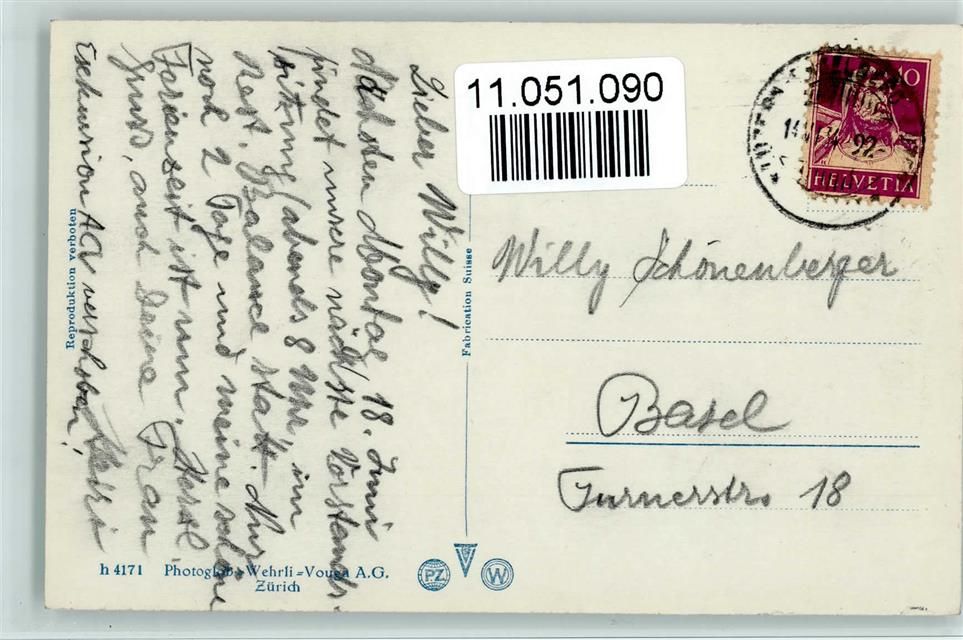 11.051.090
Lieber Willy!
Nächsten Montag, 18. Juni
findet unsere nächste Vorstands-
sitzung, abends 8 Uhr, im
Rest. Balance statt. Nur
noch 2 Tage und meine schöne
Ferienzeit ist um. Herzl.
Gruss, auch Deine Frau
verschoben!
Reproduktion verboten
Fabrication Suisse
10
HELVETIA
Willy Schönenberger
Basel
Turnerstr. 18
h 4171 Photoglob-Wehrli=Vouga A.G.
Zürich
PZ
W